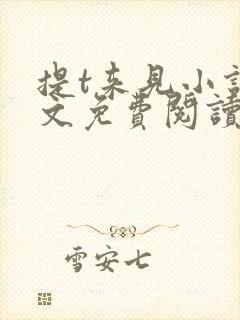 提t来見小説
文免費閱讀
雪安七